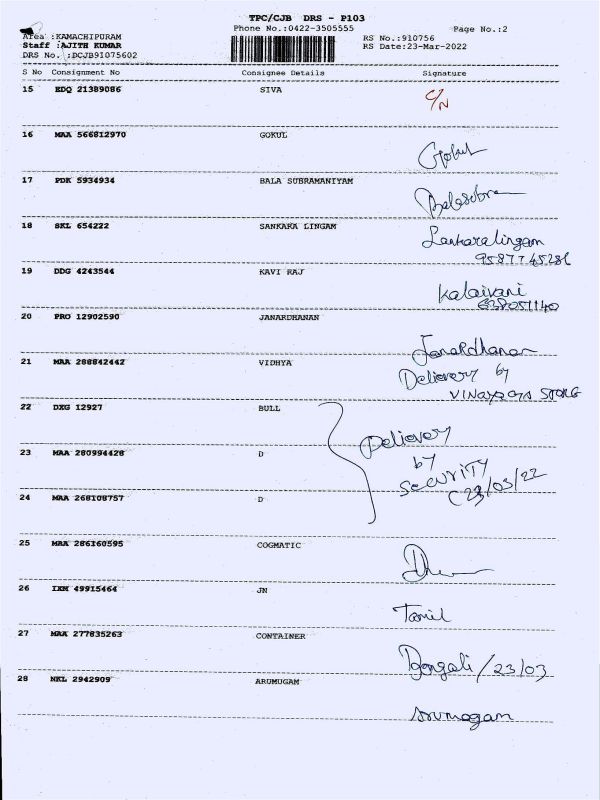 TPC/CJB DRS - P103
Phone No.:0422-3505555
Page No.:2
Area :KAMACHIPURAM
RS No.:910756
Staff :AJITH KUMAR
RS Date:23-Mar-2022
DRS No. :DCJB91075602
S No Consignment No Consignee Details Signature
15 EDQ 21389086 SIVA
C/N
16 MAA 566812970 GOKUL
Gokul
17 PDK 5934934 BALA SUBRAMANIYAM
18 SKL 654222 SANKARA LINGAM
Sankaralingam
19 DDG 4243544 KAVI RAJ
Kalaivani
20 PRO 12902590 JANARDHANAN
Janardhanan
21 MAA 288842442 VIDHYA
Delievery by
VINAYAGA STORE
22 DXG 12927 BULL
Delievery
23 MAA 280994428 D
by
security
24 MAA 268108757 D
(23/03/22
25 MAA 286160595 COGMATIC
26 IXM 49915464 JN
Tamil
27 MAA 277835263 CONTAINER
/23/03
28 NKL 2942909 ARUMUGAM
Arumogam